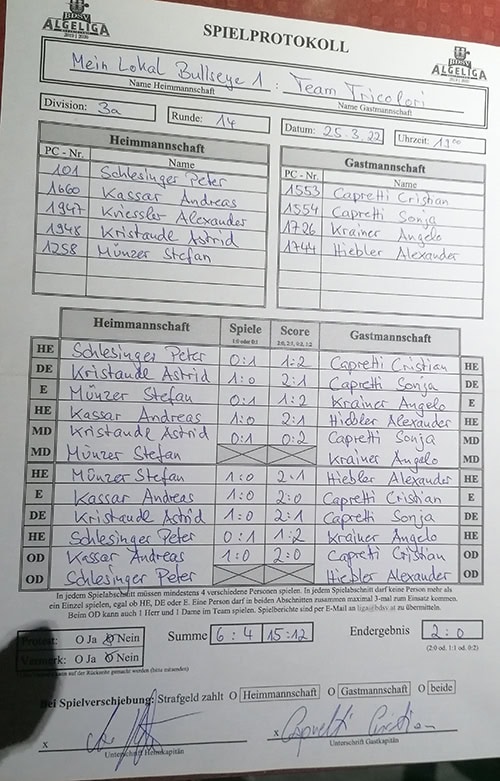 BDSV
ALGELIGA
SPIELPROTOKOLL
BDSV
ALGELIGA
Mein Lokal Bullseye 1 : Team Tricolori
Name Heimmannschaft Name Gastmannschaft
Division: 3a Runde: 14 Datum: 25.3.22 Uhrzeit: 19⁰⁰
Heimmannschaft Gastmannschaft
PC - Nr. Name PC - Nr. Name
101 Schlesinger Peter 1553 Capretti Cristian
1660 Kassar Andreas 1554 Capretti Sonja
1947 Kriessler Alexander 1726 Krainer Angelo
1948 Kristaude Astrid 1744 Hiebler Alexander
1258 Münzer Stefan
Heimmannschaft Spiele Score Gastmannschaft
1:0 oder 0:1 2:0, 2:1, 0:2, 1:2
HE Schlesinger Peter 0:1 1:2 Capretti Cristian HE
DE Kristaude Astrid 1:0 2:1 Capretti Sonja DE
E Münzer Stefan 0:1 1:2 Krainer Angelo E
HE Kassar Andreas 1:0 2:1 Hiebler Alexander HE
MD Kristaude Astrid 0:1 0:2 Capretti Sonja MD
MD Münzer Stefan Krainer Angelo MD
HE Münzer Stefan 1:0 2:1 Hiebler Alexander HE
E Kassar Andreas 1:0 2:0 Capretti Cristian E
DE Kristaude Astrid 1:0 2:1 Capretti Sonja DE
HE Schlesinger Peter 0:1 1:2 Krainer Angelo HE
OD Kassar Andreas 1:0 2:0 Capreti Cristian OD
OD Schlesinger Peter Hiebler Alexander OD
In jedem Spielabschnitt müssen mindestens 4 verschiedene Personen spielen. In jedem Spielabschnitt darf keine Person mehr als
ein Einzel spielen, egal ob HE, DE oder E. Eine Person darf in beiden Abschnitten zusammen maximal 3-mal zum Einsatz kommen.
Beim OD kann auch 1 Herr und 1 Dame im Team spielen. Spielberichte sind per E-Mail an liga@bdsv.at zu übermitteln.
Protest: O Ja O Nein Summe 6 : 4 15:12 Endergebnis 2 : 0
Vermerk: O Ja O Nein (2:0 od. 1:1 od. 0:2)
Bei Spielverschiebung: Strafgeld zahlt O Heimmannschaft O Gastmannschaft O beide
x x Capretti Cristian
Unterschrift Heimkapitän Unterschrift Gastkapitän